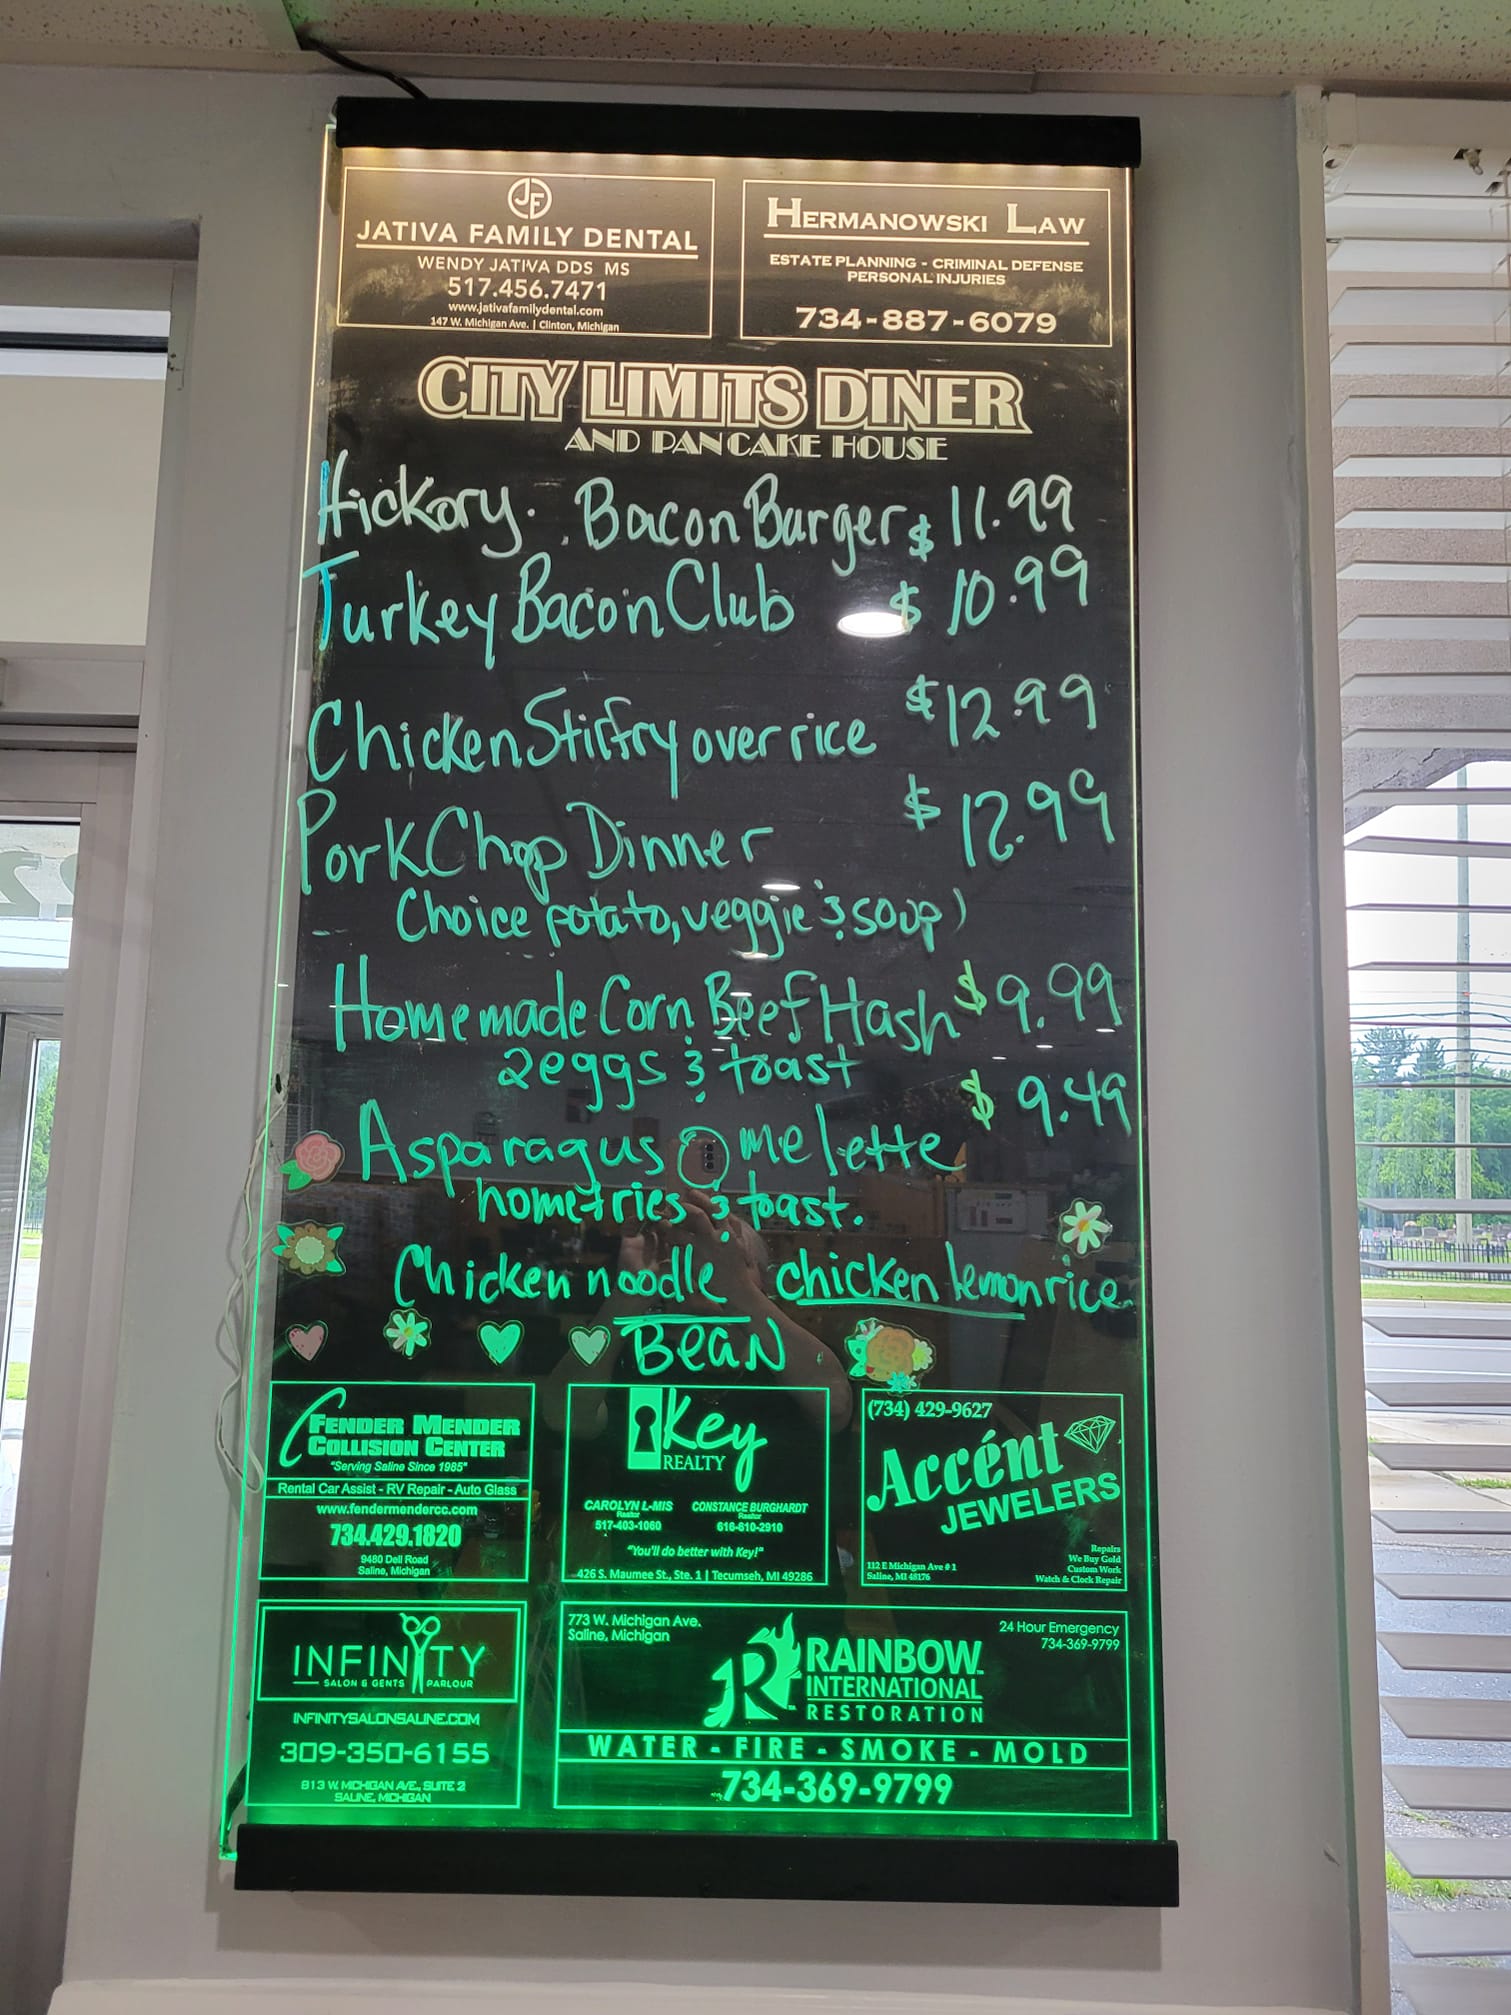 JF
JATIVA FAMILY DENTAL
WENDY JATIVA DDS MS
517.456.7471
www.jativafamilydental.com
147 W. Michigan Ave. | Clinton, Michigan
HERMANOWSKI LAW
ESTATE PLANNING - CRIMINAL DEFENSE
PERSONAL INJURIES
734-887-6079
CITY LIMITS DINER
AND PANCAKE HOUSE
Hickory. Bacon Burger $11.99
Turkey Bacon Club $10.99
Chicken Stirfry over rice $12.99
Pork Chop Dinner $12.99
Choice potato, veggie & soup)
Homemade Corn Beef Hash $9.99
2 eggs & toast
Asparagus Omelette $9.49
homefries & toast.
Chicken noodle chicken lemon rice
BEAN
FENDER MENDER
COLLISION CENTER
"Serving Saline Since 1985"
Rental Car Assist - RV Repair - Auto Glass
www.fendermendercc.com
734.429.1820
9480 Dell Road
Saline, Michigan
Key
REALTY
CAROLYN L-MIS CONSTANCE BURGHARDT
Realtor Realtor
517-403-1060 616-610-2910
"You'll do better with Key!"
426 S. Maumee St., Ste. 1 | Tecumseh, MI 49286
(734) 429-9627
Accént
JEWELERS
Repairs
We Buy Gold
Custom Work
Watch & Clock Repair
112 E Michigan Ave # 1
Saline, MI 48176
INFINITY
SALON & GENTS PARLOUR
INFINITYSALONSALINE.COM
309-350-6155
813 W. MICHIGAN AVE, SUITE 2
SALINE, MICHIGAN
773 W. Michigan Ave.
Saline, Michigan
24 Hour Emergency
734-369-9799
R
RAINBOW
INTERNATIONAL
RESTORATION
WATER - FIRE - SMOKE - MOLD
734-369-9799